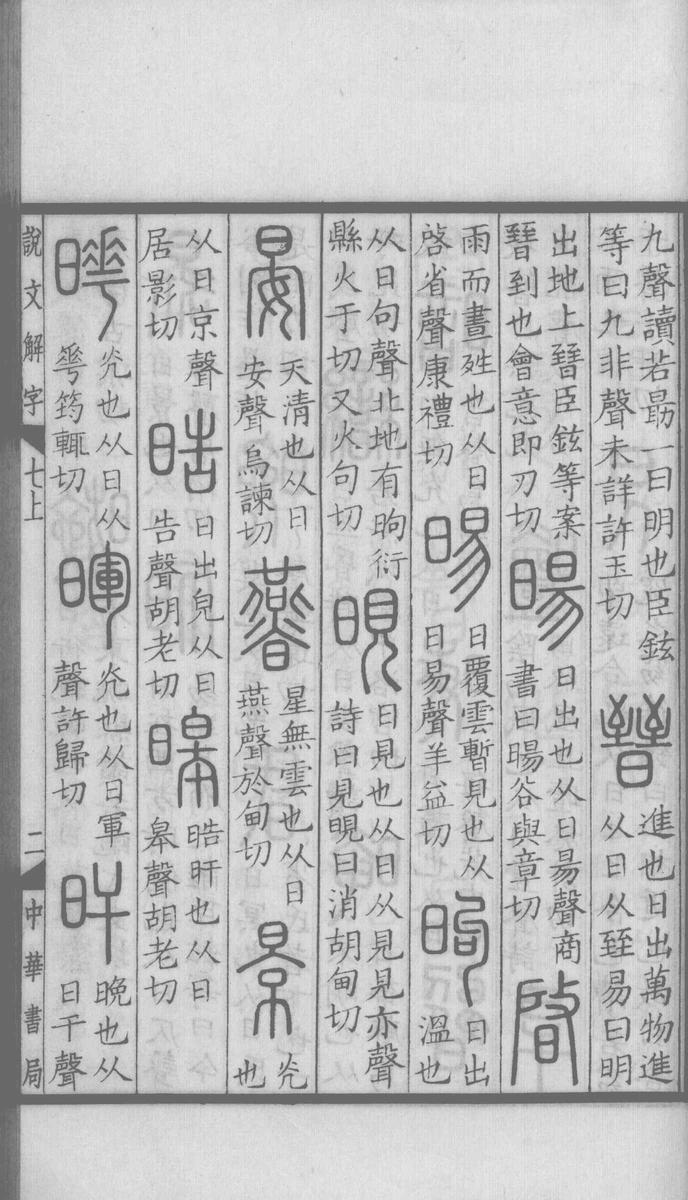 九聲讀若勗一曰明也臣鉉
等曰九非聲未詳許玉切
晉
進也日出萬物進
从日从臸易曰明
出地上𣌭臣鉉等案
臸到也會意即刃切
暘
日出也从日昜聲商
書曰暘谷與章切
晵
雨而晝夝也从日
啓省聲康禮切
晹
日覆雲暫見也从
日易聲羊益切
昫
日出
溫也
从日句聲北地有昫衍
縣火于切又火句切
晛
日見也从日从見見亦聲
詩曰見晛曰消胡甸切
晏
天清也从日
安聲烏諫切
㬫
星無雲也从日
燕聲於甸切
景
光
也
从日京聲
居影切
晧
日出皃从日
告聲胡老切
暤
晧旰也从日
皋聲胡老切
曄
光也从日从
𠌶筠輒切
暉
光也从日軍
聲許歸切
旰
晚也从
日干聲
說文解字 七上 二 中華書局